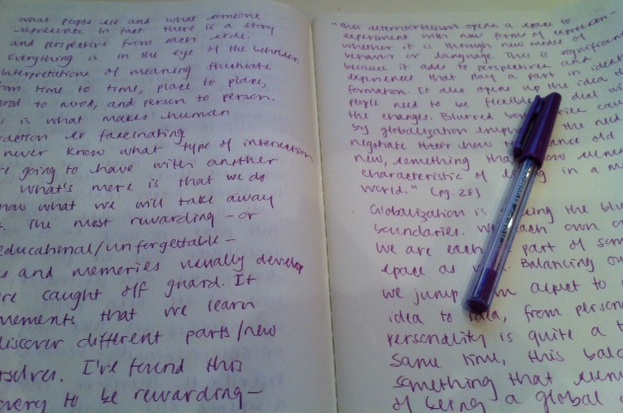 what people see and what someone
represents. In fact there is a story
and perspective from each side.
Everything is in the eye of the beholder.
Interpretations of meaning fluctuate
from time to time, place to place,
to mood, and person to person.
is is what makes human
fascinating
never know what type of interaction
going to have with another
What's more is that we do
know what we will take away
The most rewarding – or
educational/unforgettable –
and memories usually develop
caught off guard. It
moments that we learn
discover different parts/new
I've found this
to be rewarding –
"This deterritorialism opens a space to
experiment with new forms of expression –
whether it is through new modes of
behavior or language. This is significant
because it adds to perspectives and
experiences that play a part in identity
formation. It also opens up the idea that
people need to be flexible deal wi
the changes. Blurred caus
by globalization the need
negotiate old
new, something that
characteristic of in a m
world." (pg. 28)
Globalization is being the blu
boundaries. We each own or
we are each part of som
space as Balancing ou
we jump from aspect to a
idea to idea, from persona
personality is quite a t
same time, this bala
something that
of being a global